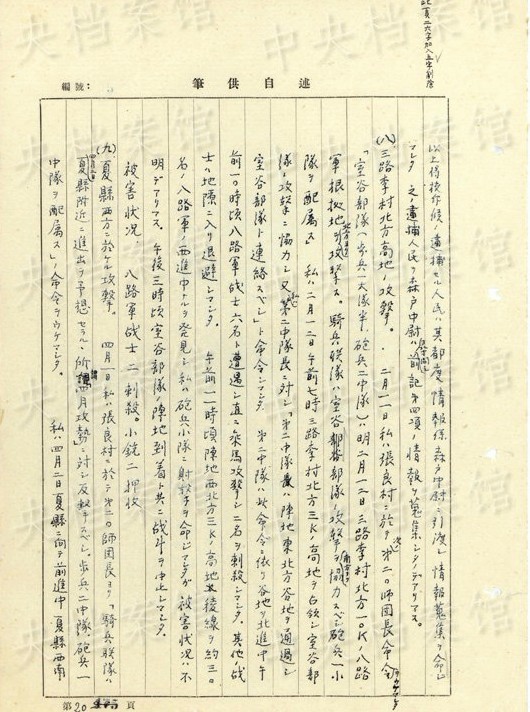 筆供自述
編號：
以上侍抜作候ノ逮捕セル人民ハ其都度情報係森戸中尉ニ引渡シ情報蒐集ヲ命ジ
マシタ 之ノ逮捕人民ヲ森戸中尉ハ前記第四項ノ情報ヲ蒐集シタノデアリマス。
(八)三路李村北方高地ノ攻撃。 二月一一日私ハ張良村ニ於テ第二〇師団長命令
「室谷部隊(歩兵一大隊半、砲兵二中隊)ハ明二月一二日三路李村北方一〇K八路
軍根拠地ヲ攻撃ス。騎兵聯隊ハ室谷部隊ノ攻撃ニ協力スベシ 砲兵一小
隊ヲ配属ス」 私ハ二月一二日午前七時三路李村北方三Kノ高地ヲ占領シ室谷部
隊ノ攻撃ニ協力シ又第二中隊長ニ対シ「第二中隊ハ陣地東北方谷地ヲ通過シ
室谷部隊ト連絡スベシ」ト命令シマシタ 第二中隊ハ此命令ニ依リ谷地ヲ北進中午
前一〇時頃八路軍战士六名ト遭遇シ直ニ乘馬攻撃シ二名ヲ刺殺シマシタ。其他ノ战
士ハ地隙ニ入リ退避シマシタ。 午前一一時頃陣地西北方三Kノ高地最後線ヲ約三〇
名ノ八路軍ノ西進中ナルヲ発見シ私ハ砲兵小隊ニ射撃ヲ命ジマシタガ被害状况ハ不
明デアリマス。午後三時頃室谷部隊ノ陣地到着ト共ニ战斗ヲ中止シマシタ。
被害状况、 八路軍战士二刺殺。小銃二押收
(九)夏縣西方ニ於ケル攻撃。 四月一日私ハ張良村ニ於テ第二〇師団長ヨリ「騎兵聯隊ハ
夏縣附近ニ進出ヲ予想セラル、所謂四月攻勢ニ対シ反撃スベシ。歩兵二中隊、砲兵一
中隊ヲ配属ス」ノ命令ヲウケマシタ。 私ハ四月二日夏縣ニ向テ前進中夏縣西南
第20頁
中央档案馆